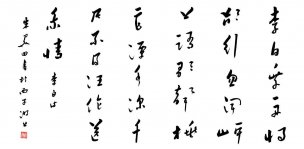 李白乘舟将
欲行忽闻岸
上踏歌声桃
花潭水深千
尺不及汪伦送
我情 李白诗